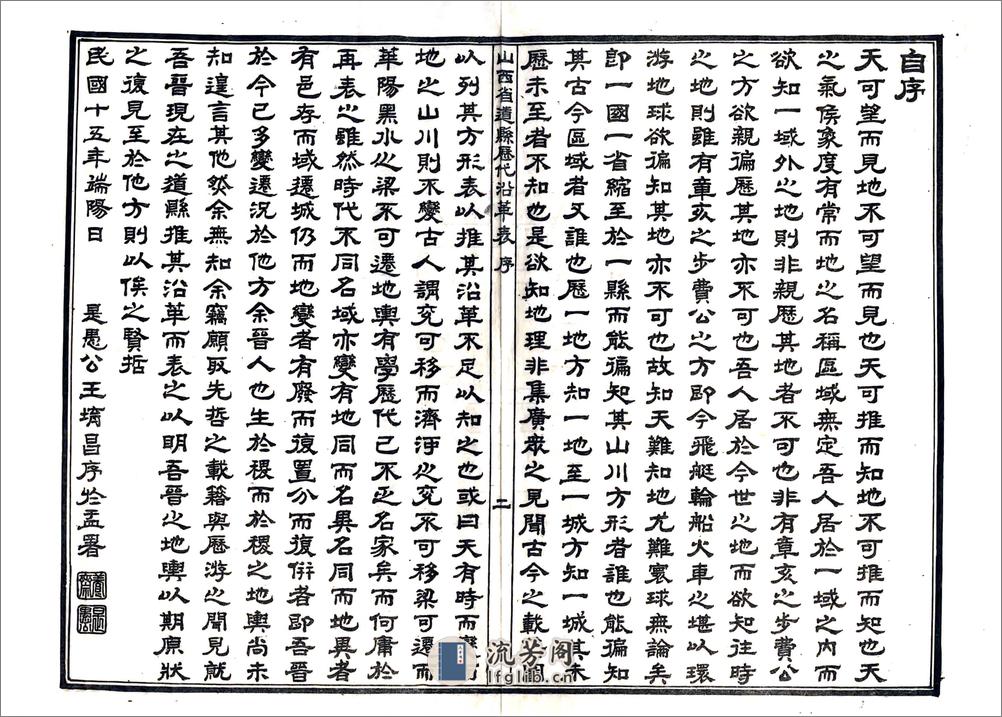 自序
天可望而見地不可望而見也天可推而知地不可推而知也天
之氣侯象度有常而地之名稱區域無定吾人居於一域之內而
欲知一域外之地則非親歷其地者不可也非有章亥之步費公
之方欲親徧歷其地亦不可也吾人居於今世之地而欲知往時
之地則雖有章亥之步費公之方即今飛艇輪船火車之堪以環
游地球欲徧知其地亦不可也故知天難知地尤難寰球無論矣
即一國一省縮至於一縣而能徧知其山川方形者誰也能徧知
其古今區域者又誰也歷一地方知一地至一城方知一城其未
歷未至者不知也是欲知地理非集廣衆之見聞古今之載
山西省道縣歷代沿革表 序
二
以列其方形表以推其沿革不足以知之也或曰天有時而變
地之山川則不變古人謂兗可移而濟河之兗不可移梁可遷而
華陽黑水之梁不可遷地輿有學歷代已不乏名家矣而何庸於
再表之雖然時代不同名域亦變有地同而名異名同而地異者
有邑存而域遷城仍而地變者有廢而復置分而復併者即吾晉
於今已多變遷況於他方余晉人也生於稷而於稷之地輿尚未
知遑言其他然余無知余竊願取先哲之載籍與歷游之聞見就
吾晉現在之道縣推其沿革而表之以明吾晉之地輿以期原狀
之復見至於他方則以俟之賢哲
民國十五年端陽日
是愚公王堉昌序於盂署
流芳阁
lfglib.cn